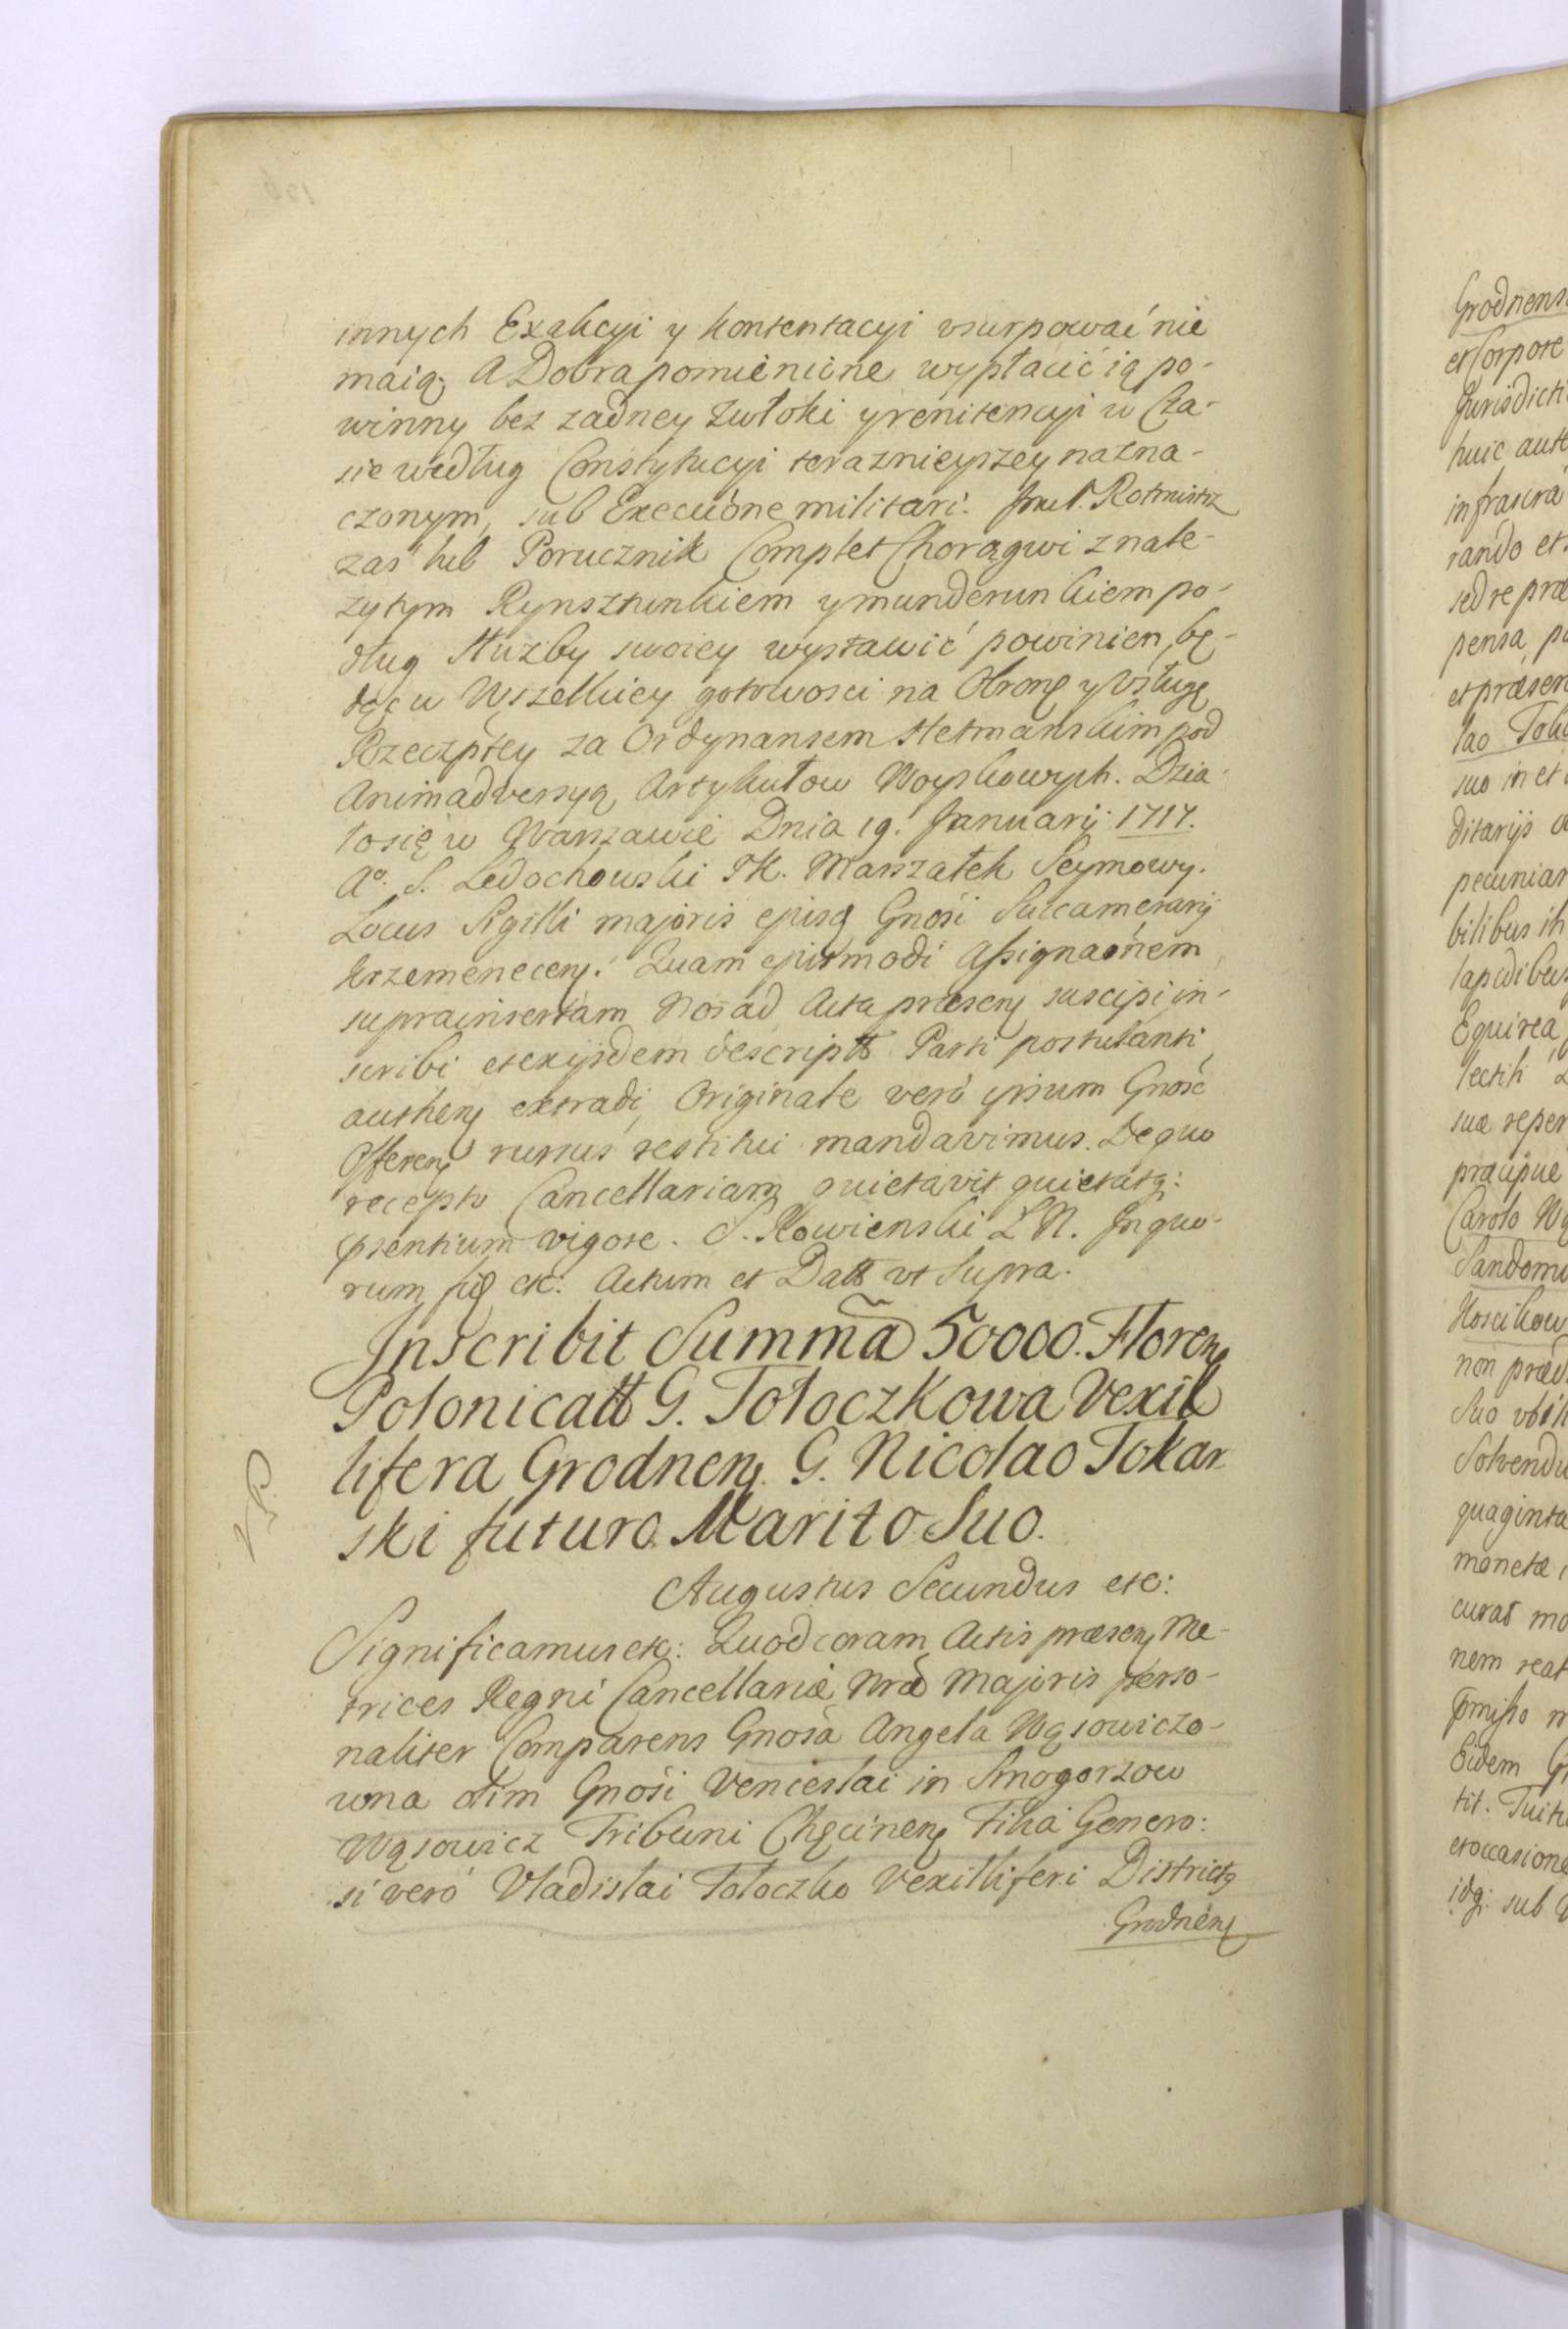 innych Exakcyi y kontentacyi vsurpować nie
maią; A Dobra pomienione wypłacić ią po-
winny bez zadney zwłoki y renitencyi w Cza-
sie według Constytucyi teraznieyszey nazna-
czonym, sub Execuone militari. Rotmistrz
zaś lub Porucznik Complet Chorągwi z nale-
zytym Rynsztunkiem y munderunkiem po-
dług służby swoiey wystawić powinien, bę-
dąc w Wszelkiey gotowosci na Obronę y Vsługę
Rzeczptey za Ordynansem Hetmanskim pod
Animadversyą Artykułow Woyskowych. Dzia-
ło się w Warszawie Dnia 19. Januarij 1717.
Ao. S. Ledochowski PK. Marszałek Seymowy.
Locus Sigilli majoris ejusq Gnosi Succamerarij
Krzemenecen. Quam ejusmodi Assignaonem
suprainsertam Nos ad Acta praesen suscipi in-
scribi et ex ijsdem descriptt Parti postulanti
authen extradi, Originale vero ipsum Gnose
Offeren rursus restitui mandavimus. De quo
recepto Cancellariam quietavit quietatq:
psentium vigore. S. Rowienski LN. In quo-
rum fid etc: Actum et Datt vt Supra.
Inscribit Summa 50000. Floren
Polonicatt G. Tołoczkowa Vexil
lifera Grodnen. G. Nicolao Tokar
ski futuro Marito Suo.
Augustus Secundus etc:
Significamus etc: Quod coram Actis praesen Me-
trices Regni Cancellariae Nrae Majoris perso-
naliter Comparens Gnosa Angela Wąsowiczo-
wna olim Gnosi Venceslai in Smogorzow
Wąsowicz Tribuni Chęcinen Filia Genero:
si vero Vladislai Tołoczko Vexilliferi Districtq
Grodnen
Grodnens
et Corpore
Jurisdicti
huic aute
infrascra
rando et
sed re prae
pensa, pu
et praesen
lao Toka
suo in et
ditarijs
pecuniar
bilibus ih
lapidibus
Equirea
lectih
suae reper
praecipue
Carolo Wą
Sandomi
Koscikow
non praed
Suo vbih
Solvendu
quaginta
monetae
curat mo
nem reat
pmisso
Eidem G
tit. Tuiti
et occasione
idq: sub